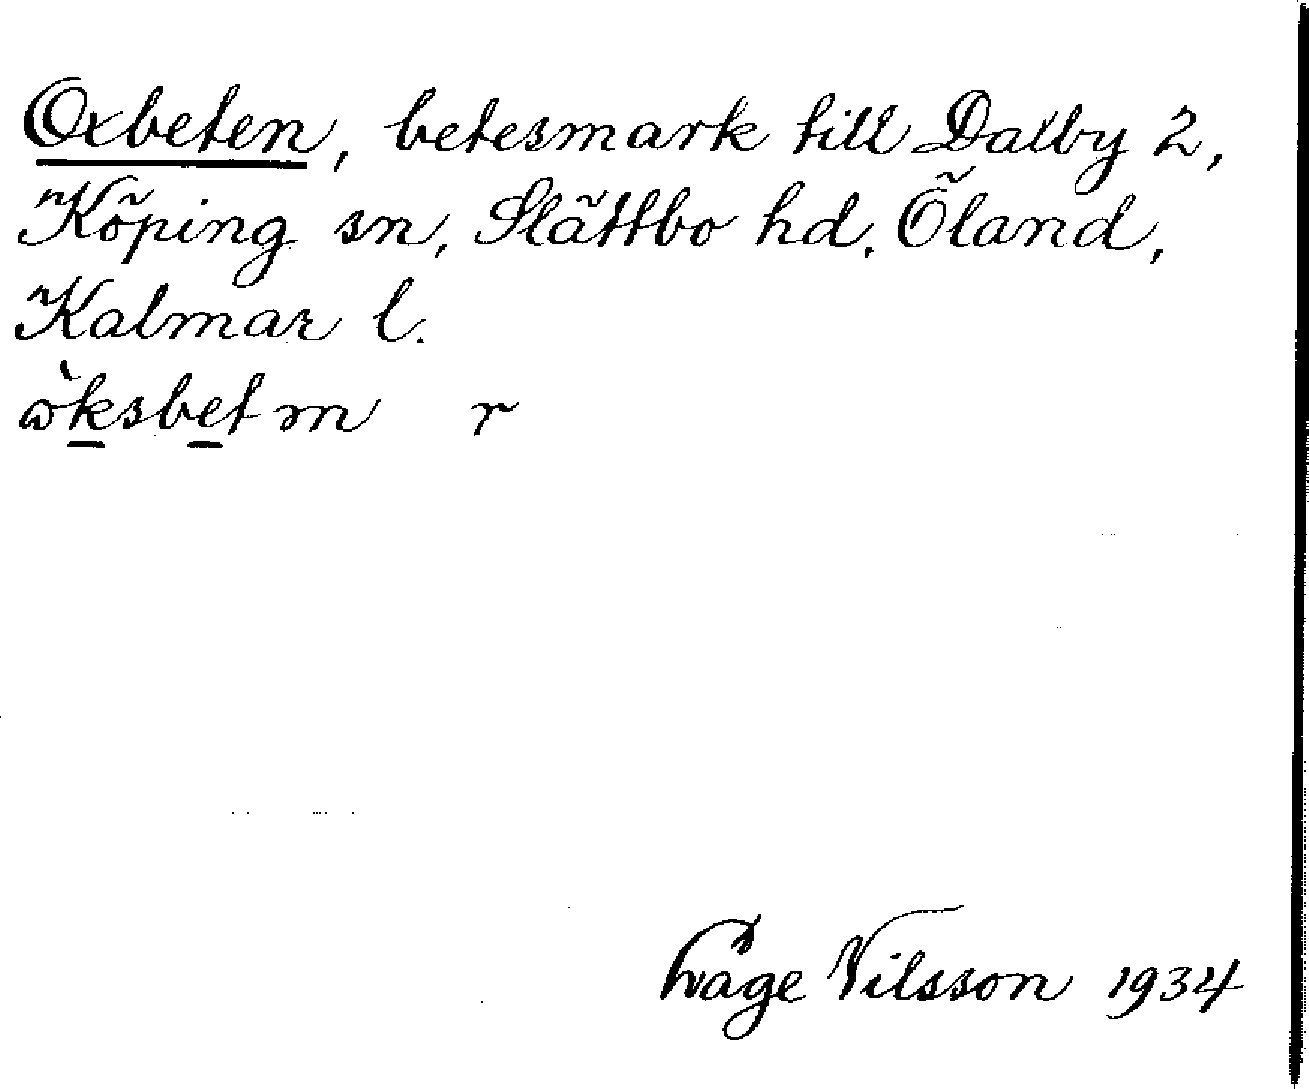 Oxbeten, betesmark till Dalby 2,
Köping sn, Slättbo hd, Öland,
Kalmar l.
öksbetm r
Nilsson 1934